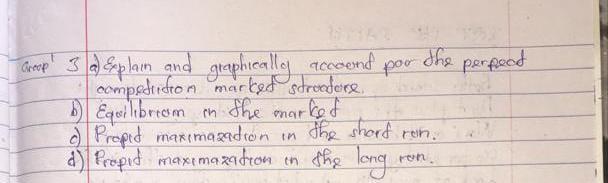 Group 3 a) Explain and graphically account for the perfect
competition market structure.
b) Equilibrium in the market
c) Profit maximazation in the short run.
d) Profit maximazation in the long run.